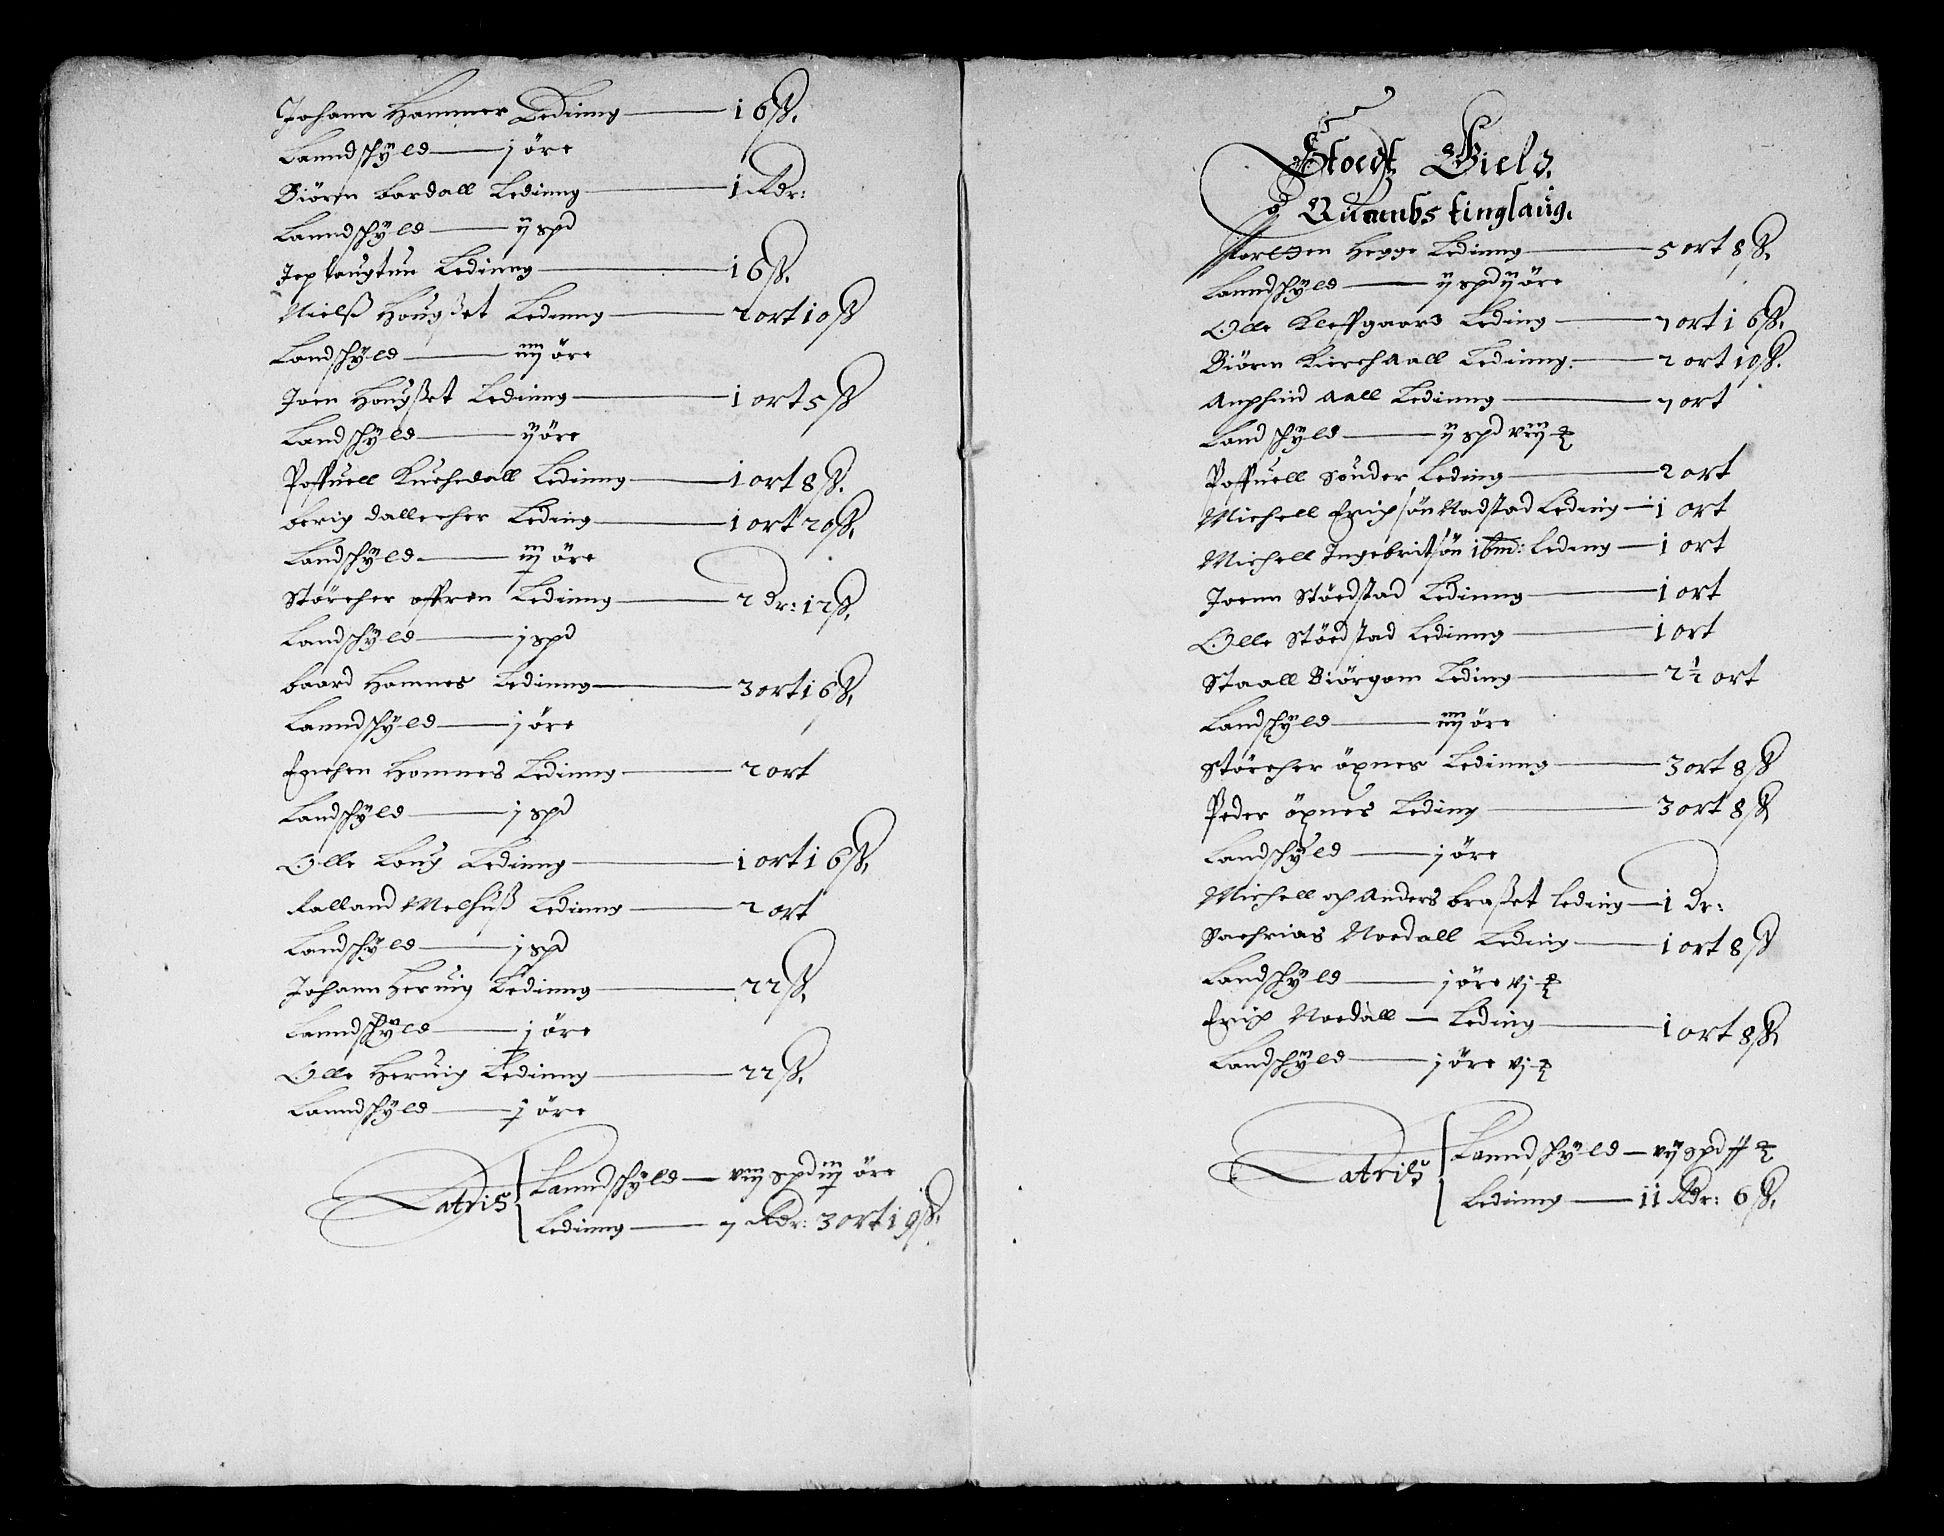 Johann Hammer Ledinng — 16 ß.
Lanndschÿld — j öre
Biörn Bardall Ledinng — 1 Rdr:
Lanndschÿld — ij spd
Jep Ledinng — 16 ß.
Nielß Hougßet Ledinng — 2 ort 10 ß
Landschÿld — iiij öre
Joen Hougßet Ledinng — 1 ort 5 ß
Landschÿld — ij öre
Poffuell Kuehedall Ledinng — 1 ort 8 ß.
Berig dallecher Leding — 1 ort 20 ß.
Landschÿld — öre
Störcher offren Ledinng — 2 dr: 12 ß.
Landschÿld — j spd
baard Homnes Ledinng — 3 ort 16 ß.
Lanndschÿld — j öre
Erichen Homnes Ledinng — 2 ort
Landschÿld — j spd
Olle Loug Ledinng — 1 ort 16 ß.
Falland Melhuß Ledinng — 2 ort
Landschÿld — j spd
Johann Heruig Ledinng — 22 ß.
Lanndschÿld — öre
Olle Heruig Ledinng — 22 ß.
Lanndschÿld — öre
Latris Lanndschÿld — viij spd öre
Ledinng — 7 Rdr: 3 ort 19 ß.
Stoedtz Gield.
Quambs tinglaug.
Hegge Ledinng — 5 ort 8 ß.
Lanndschÿld — ij spd ij öre
Olle Kleffgaard Leding — 7 ort 16 ß.
Biörn Kirchaall Ledinng. — 2 ort 10 ß.
Anphind Aall Ledinng — 7 ort
Landschÿld — ij spd viij
Poffuell Sönder Leding — 2 ort
Michell Erichsön Nadstad Leding — 1 ort
Michell Ingebritsön ibm: leding — 1 ort
Joenn Stöedstad Ledinng — 1 ort
Olle Stöedstad Ledinng — 1 ort
Staall Biörgom Leding — 2 ½ ort
Landschÿld — iiij öre
Störcher öxnes Ledinng — 3 ort 8 ß
Peder öxnes Leding — 3 ort 8 ß
Landschÿld — j öre
Michell och Anders braßet leding — 1 dr:
Sachrias Noedall Leding — 1 ort 8 ß
Landschÿld — j öre vj
Erich Noedall — Leding — 1 ort 8 ß
Landschÿld — j öre vj
Latris Lanndschÿld — vij spd
Ledinng — 11 Rdr: 6 ß.